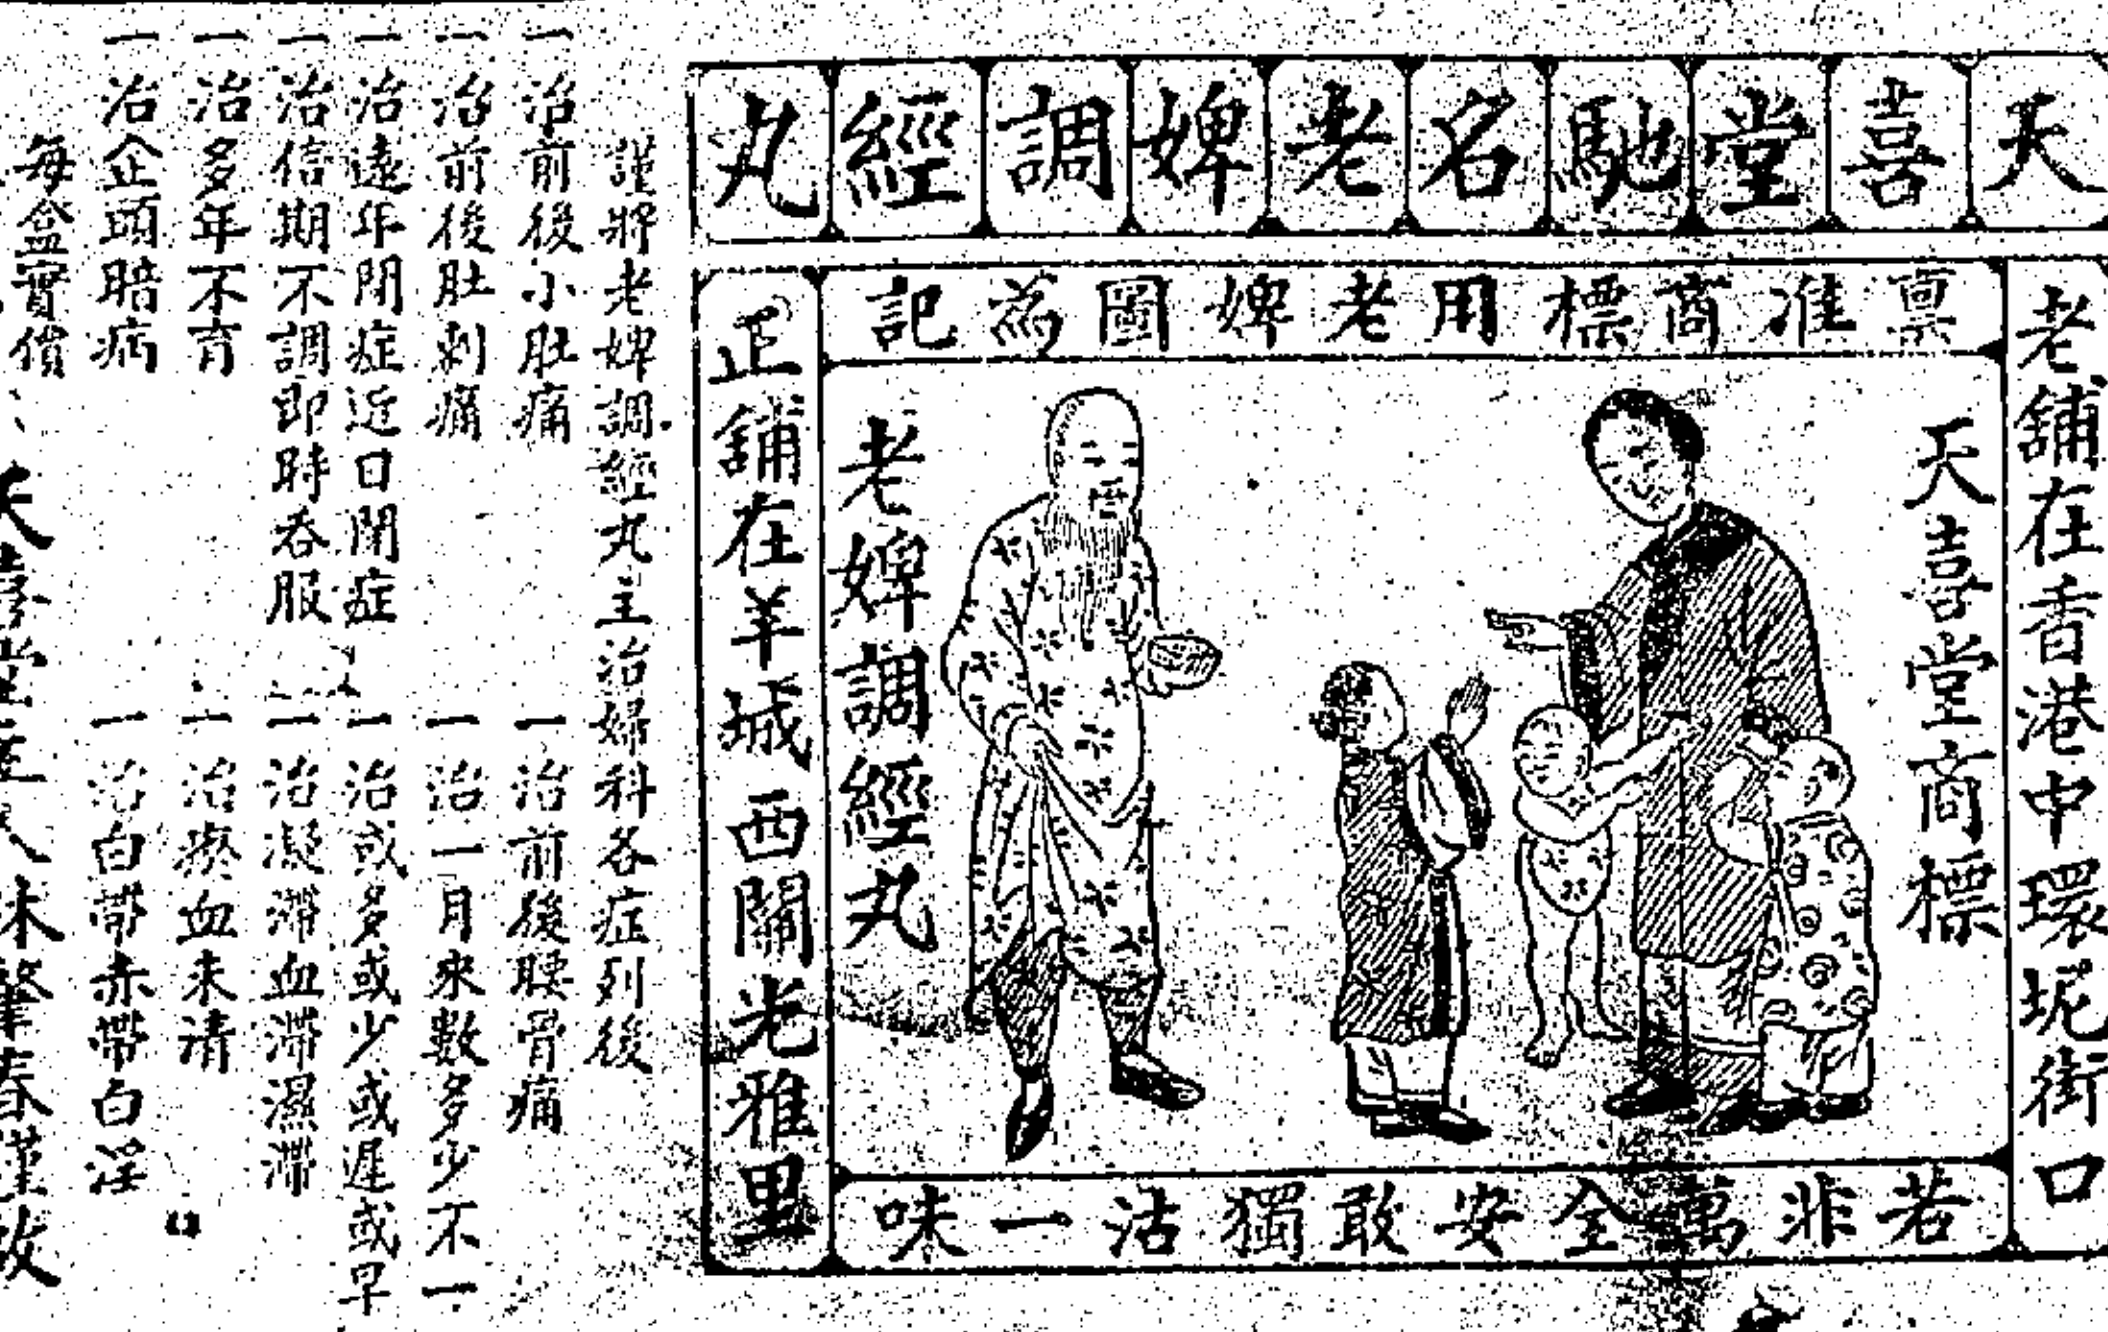 天喜堂馳名老婢調經丸
老舖在香港中環坭街口
稟准商標用老婢圖為記
天喜堂商標
老婢調經丸
若非萬全安敢獨沽一味
正舖在羊城西關光雅里
謹將老婢調經丸主治婦科各症列後
一治前後小肚痛
一治前後腰骨痛
一治前後肚刺痛
一治一月來數多少不一
一治遠年閉症近日閉症
一治或多或少或遲或早
一治信期不調即時吞服
一治凝滯血滯濕滯
一治多年不育
一治瘀血未清
一治企頭暗病
一治白帶赤帶白淫
每盒實價
天喜堂